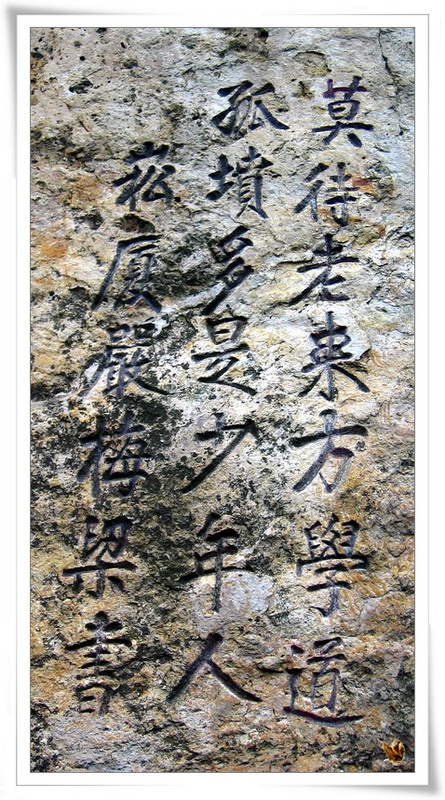 莫待老來方學道
孤墳多是少年人
崧厦嚴梅梁書